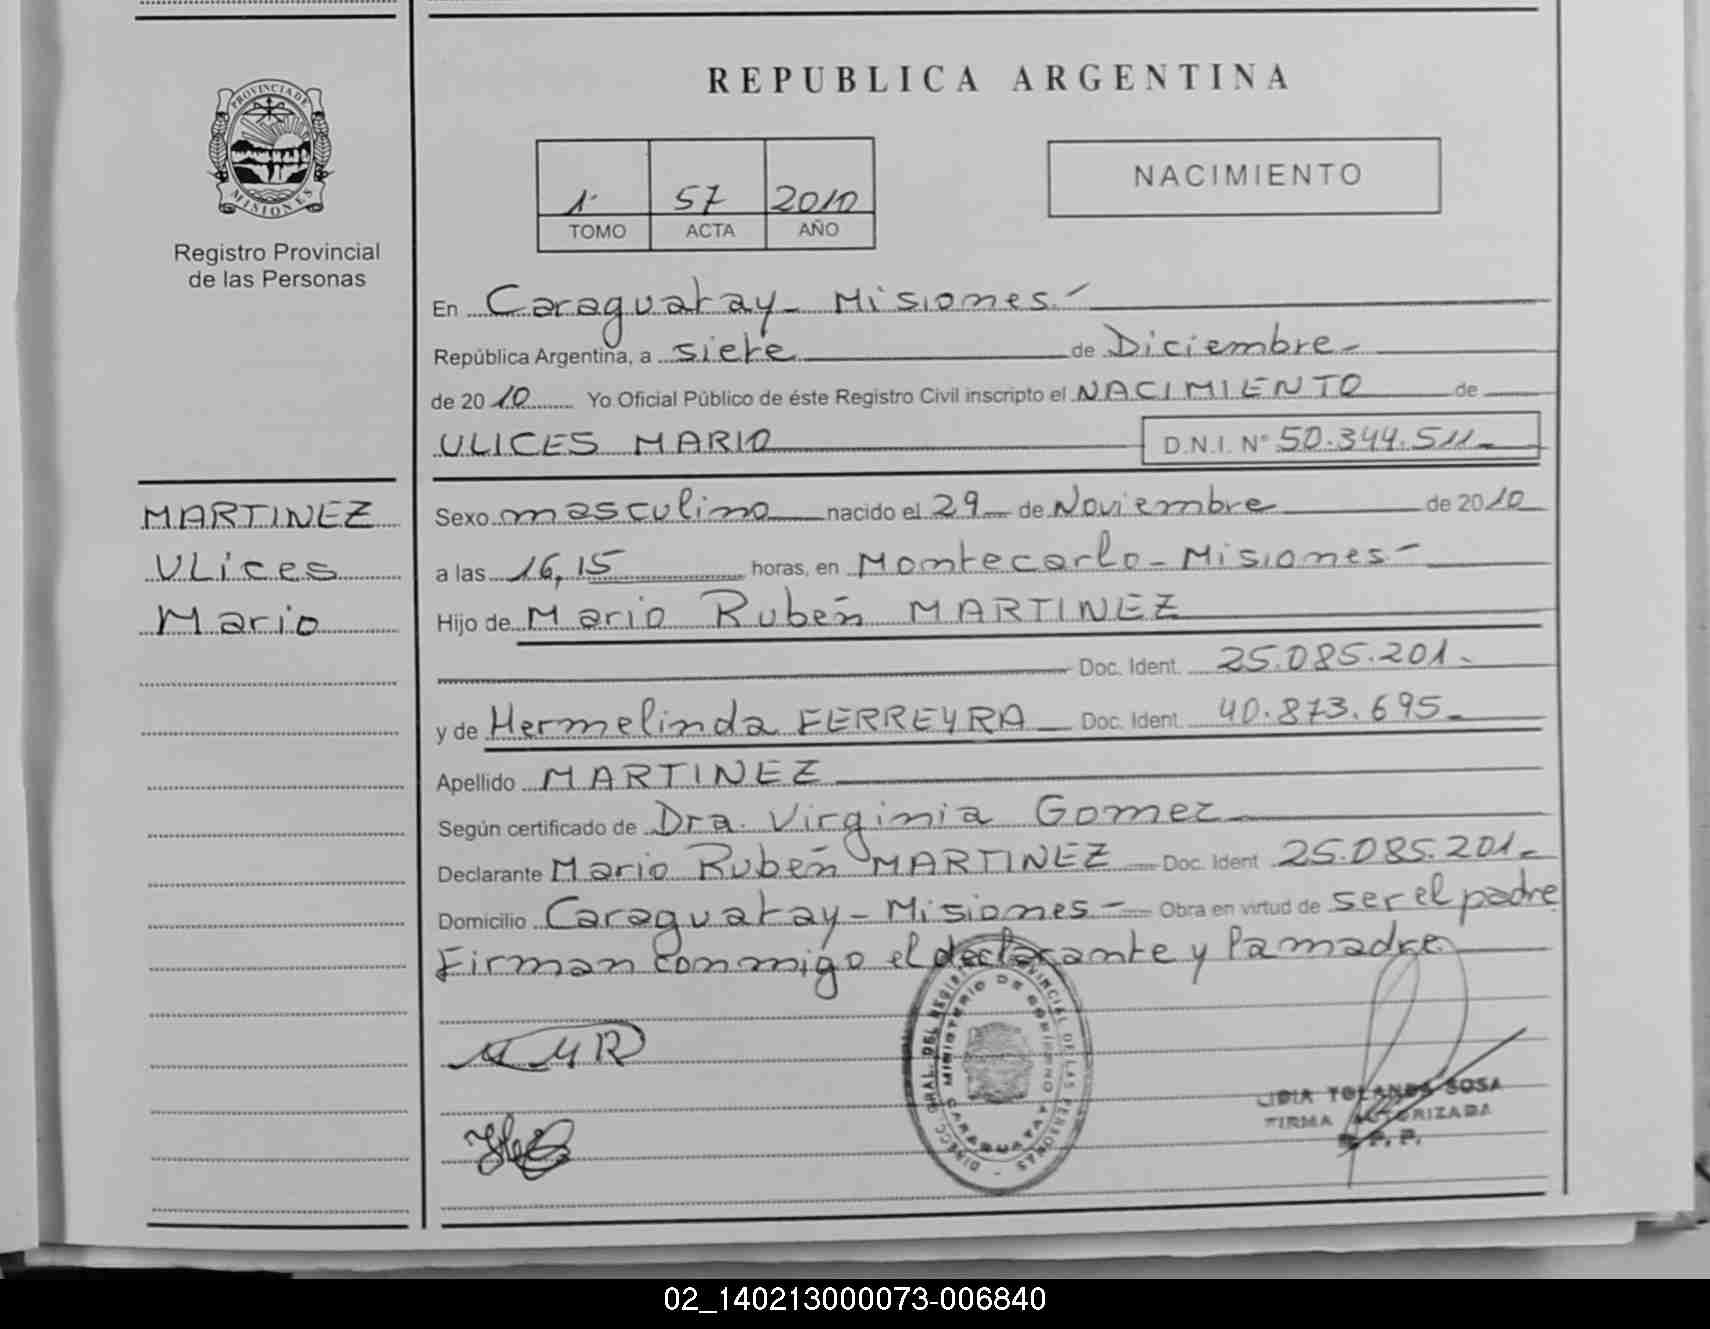 REPUBLICA ARGENTINA
PROVINCIA DE
MISIONES
Registro Provincial
de las Personas
1· 57 2010
TOMO ACTA AÑO
NACIMIENTO
En Caraguatay - Misiones -
República Argentina, a siete de Diciembre -
de 2010 Yo Oficial Público de éste Registro Civil inscripto el NACIMIENTO de
ULICES MARIO D.N.I. N° 50.344.511-
MARTINEZ
ULices
Mario
Sexo masculino nacido el 29 de Noviembre de 2010
a las 16,15 horas, en Montecarlo - Misiones -
Hijo de Mario Rubén MARTINEZ
Doc. Ident. 25.085.201.
y de Hermelinda FERREYRA Doc. Ident. 40.873.695-
Apellido MARTINEZ
Según certificado de Dra. Virginia Gomez
Declarante Mario Rubén MARTINEZ Doc. Ident 25.085.201-
Domicilio Caraguatay - Misiones - Obra en virtud de ser el padre
Firman conmigo el declarante y la madre
MINISTERIO DE GOBIERNO
LIDIA YOLANDA SOSA
FIRMA AUTORIZADA
R. P. P.
02_140213000073-006840